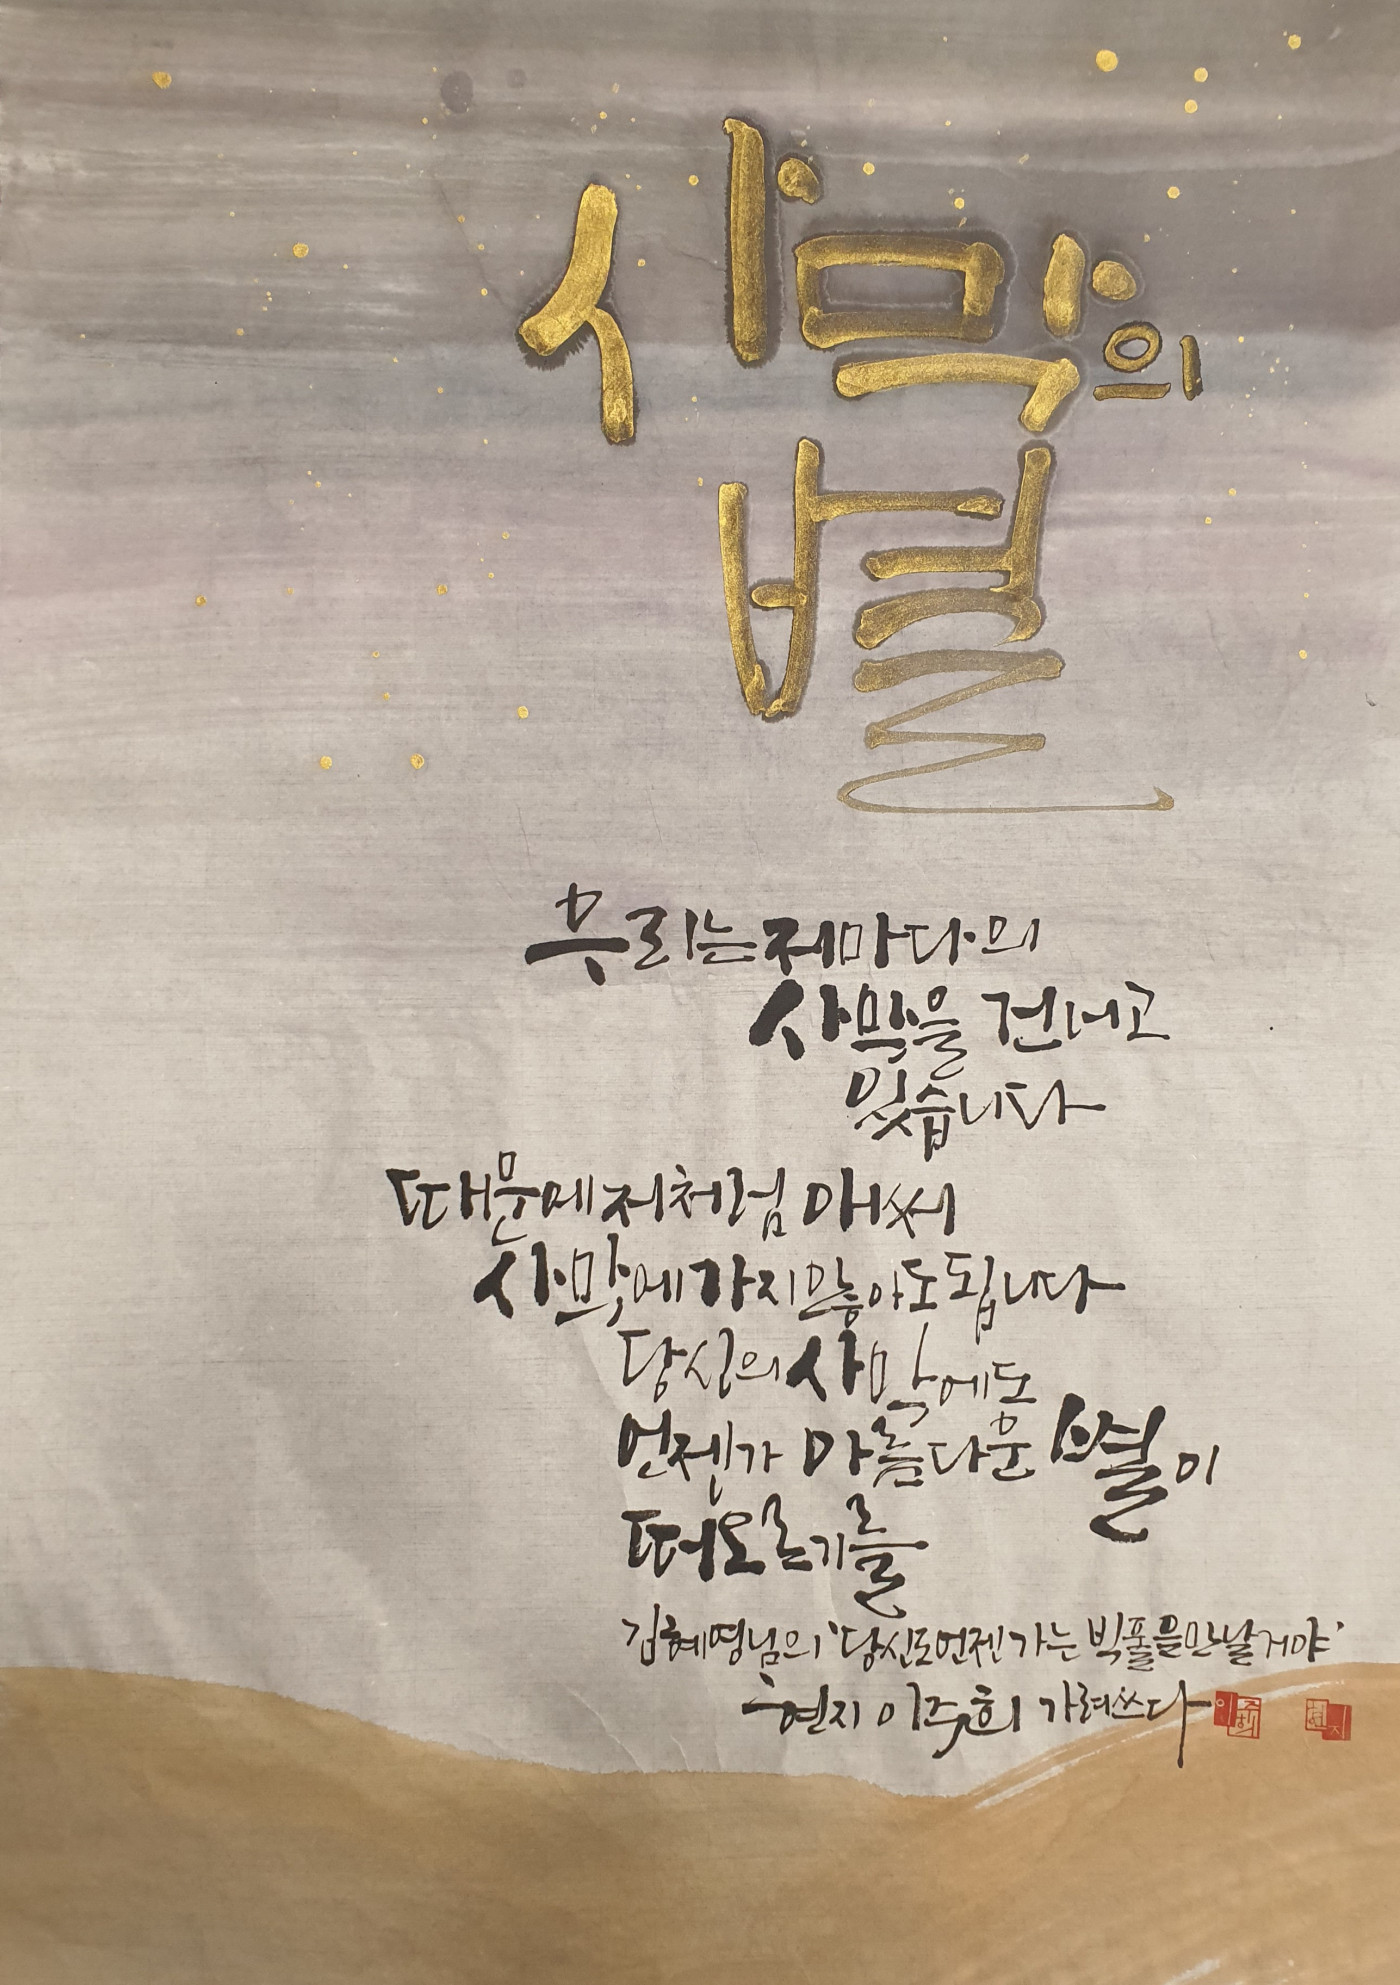 사막의
별
우리는 저마다의
사막을 건너고
있습니다
때문에 저처럼 애써
사막에 가지 않아도 됩니다
당신의 사막에도
언젠가 아름다운 별이
떠오르기를
김혜영님의 '당신도 언젠가는 빅풀을 만날거야'
현지 이주희 가려쓰다
이주희
현지